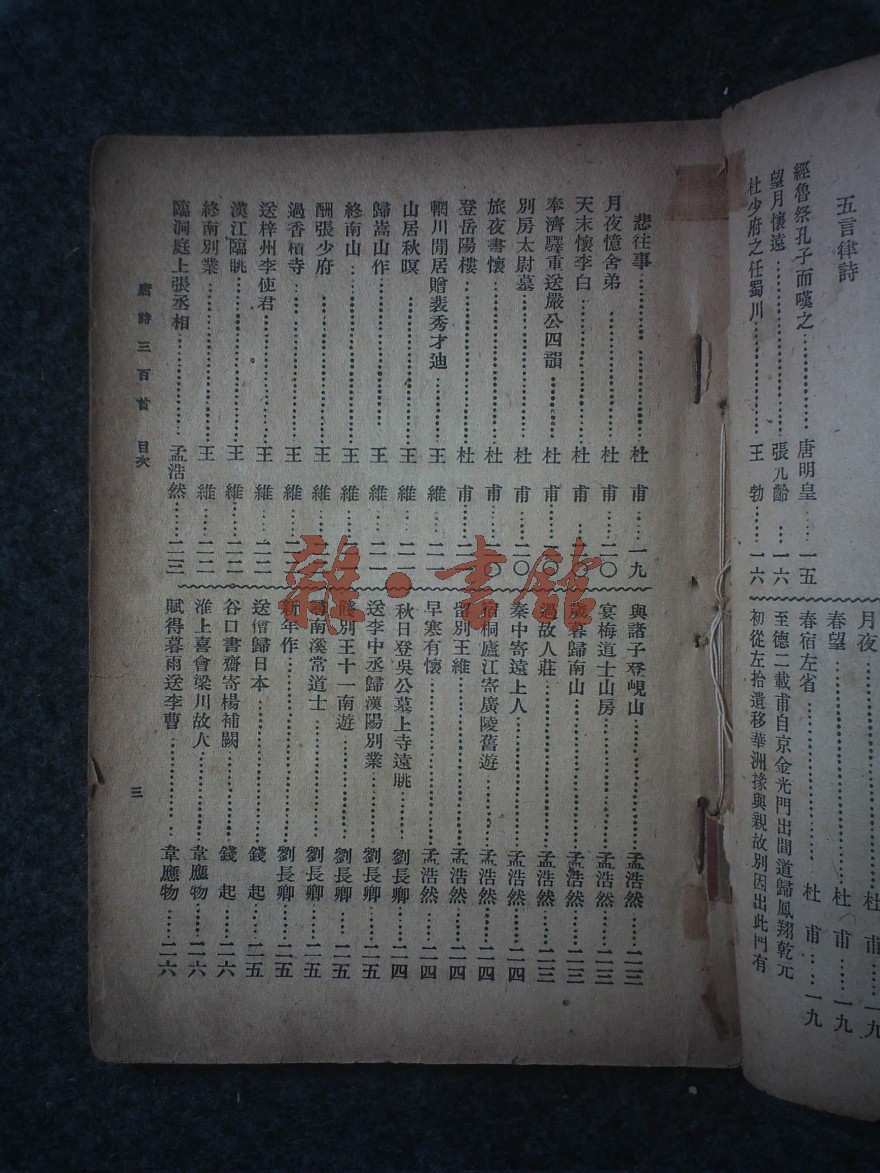 五言律詩
經魯祭孔子而嘆之……唐明皇……一五
望月懷遠……張九齡……一六
杜少府之任蜀川……王勃……一六
月夜……杜甫……一九
春望……杜甫……一九
春宿左省……杜甫……一九
至德二載甫自京金光門出間道歸鳳翔乾元
初從左拾遺移華洲掾與親故別因出此門有
悲往事……杜甫……一九
月夜憶舍弟……杜甫……二〇
天末懷李白……杜甫……二〇
奉濟驛重送嚴公四韻……杜甫……二〇
別房太尉墓……杜甫……二〇
旅夜書懷……杜甫……二〇
登岳陽樓……杜甫……二一
輞川閒居贈裴秀才迪……王維……二一
山居秋暝……王維……二一
歸嵩山作……王維……二一
終南山……王維……二一
酬張少府……王維……
過香積寺……王維……
送梓州李使君……王維……二二
漢江臨眺……王維……二二
終南別業……王維……二二
臨洞庭上張丞相……孟浩然……二三
與諸子登峴山……孟浩然……二三
宴梅道士山房……孟浩然……二三
歲暮歸南山……孟浩然……二三
過故人莊……孟浩然……二三
秦中寄遠上人……孟浩然……二四
宿桐廬江寄廣陵舊遊……孟浩然……二四
留別王維……孟浩然……二四
早寒有懷……孟浩然……二四
秋日登吳公墓上寺遠眺……劉長卿……二四
送李中丞歸漢陽別業……劉長卿……二五
餞別王十一南遊……劉長卿……二五
尋南溪常道士……劉長卿……二五
新年作……劉長卿……二五
送僧歸日本……錢起……二五
谷口書齋寄楊補闕……錢起……二六
淮上喜會梁川故人……韋應物……二六
賦得暮雨送李曹……韋應物……二六
唐詩三百首 目次
三
雜·書館